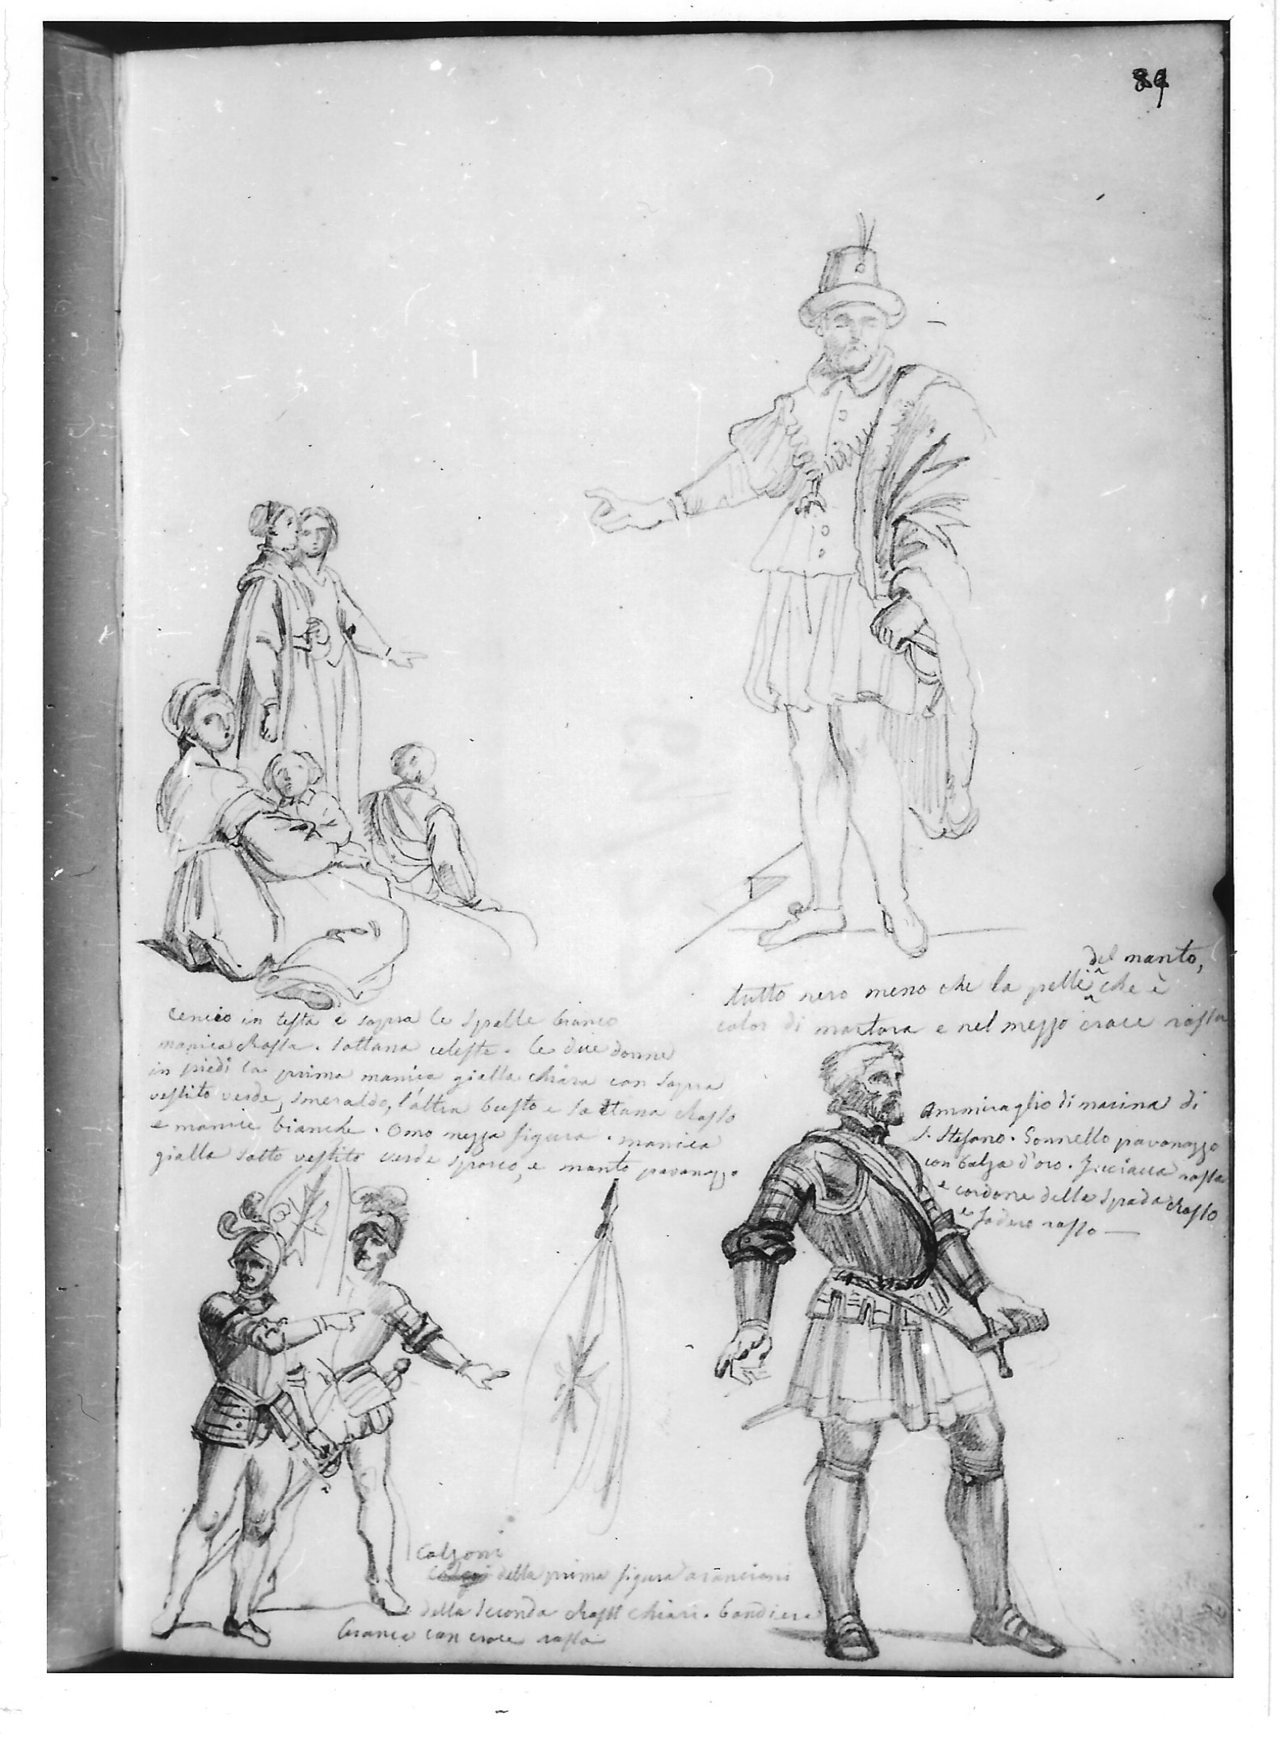 89
del manto,
tutto nero meno che la pelli che è
color di martora e nel mezzo croce rossa
in testa e sopra le spalle bianco
manica Rossa. sottana celeste. le due donne
in piedi la prima manica gialla chiara con sopra
vestito verde, smeraldo, l'altra busto e sottana Rosso
e manice bianche. Omo mezza figura. manica
gialla sotto vestito verde sporco, e manto pavonazzo
Ammiraglio di marina di
S. Stefano. Gonnello pavonazzo
con balza d'oro. rossa
e cordone della spada Rosso
e fodero rosso —
Calzoni
della prima figura arancioni
della seconda Rossi chiari. bandiera
bianca con croce rossa